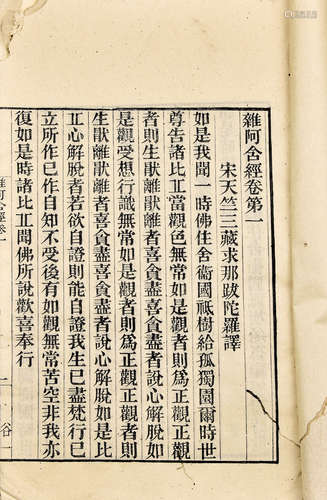 雜阿含經卷第一
宋天竺三藏求那跋陀羅譯
如是我聞一時佛住舍衞國祇樹給孤獨園爾時世
尊告諸比丘當觀色無常如是觀者則為正觀正觀
者則生猒離猒離者喜貪盡喜貪盡者說心解脫如
是觀受想行識無常如是觀者則為正觀正觀者則
生猒離猒離者喜貪盡喜貪盡者說心解脫如是比
丘心解脫者若欲自證則能自證我生已盡梵行已
立所作已作自知不受後有如觀無常苦空非我亦
復如是時諸比丘聞佛所說歡喜奉行
雜阿含經卷一
一